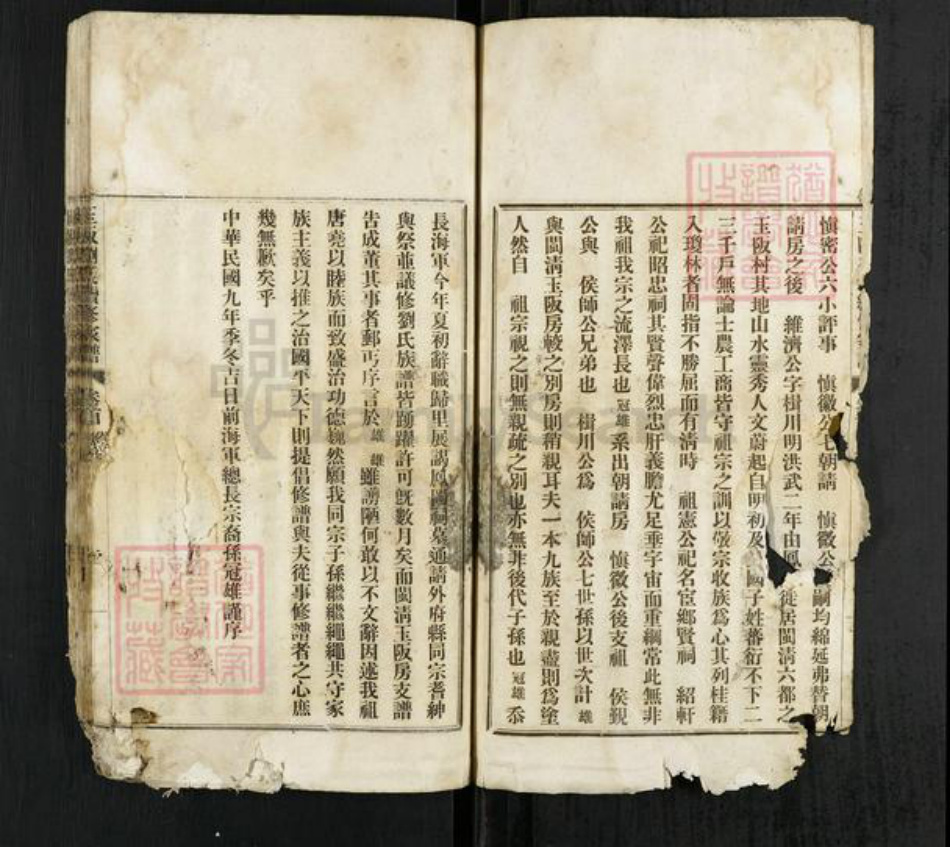 慎密公六小評事　慎徽公七朝請　慎徽公嗣均綿延弗替朝
請房之後　維濟公字楫川明洪武二年由鳳徙居閩清六都之
玉阪村其地山水靈秀人文蔚起自明初及國子姓蕃衍不下二
三千戶無論士農工商皆守祖宗之訓以敬宗收族爲心其列桂籍
入瓊林者固指不勝屈而有清時　祖憲公祀名宦鄉賢祠　紹軒
公祀昭忠祠其賢聲偉烈忠肝義膽尤足垂宇宙而重綱常此無非
我祖我宗之流澤長也冠雄系出朝請房　慎徽公後支祖　侯覡
公與　侯師公兄弟也　楫川公爲　侯師公七世孫以世次計雄
與閩清玉阪房較之別房則稍親耳夫一本九族至於親盡則爲塗
人然自　祖宗視之則無親疏之別也亦無非後代子孫也冠雄忝
長海軍今年夏初辭職歸里展謁鳳國祠墓通請外府縣同宗耆紳
與祭並議修劉氏族譜皆踴躍許可旣數月矣而閩清玉阪房支譜
告成董其事者郵丐序言於雄　雄雖謭陋何敢以不文辭因述我祖
唐堯以睦族而致盛治功德巍然願我同宗子孫繼繼繩繩共守家
族主義以推之治國平天下則提倡修譜與夫從事修譜者之心庶
幾無厭矣乎
中華民國九年季冬吉旦前海軍總長宗裔孫冠雄謹序